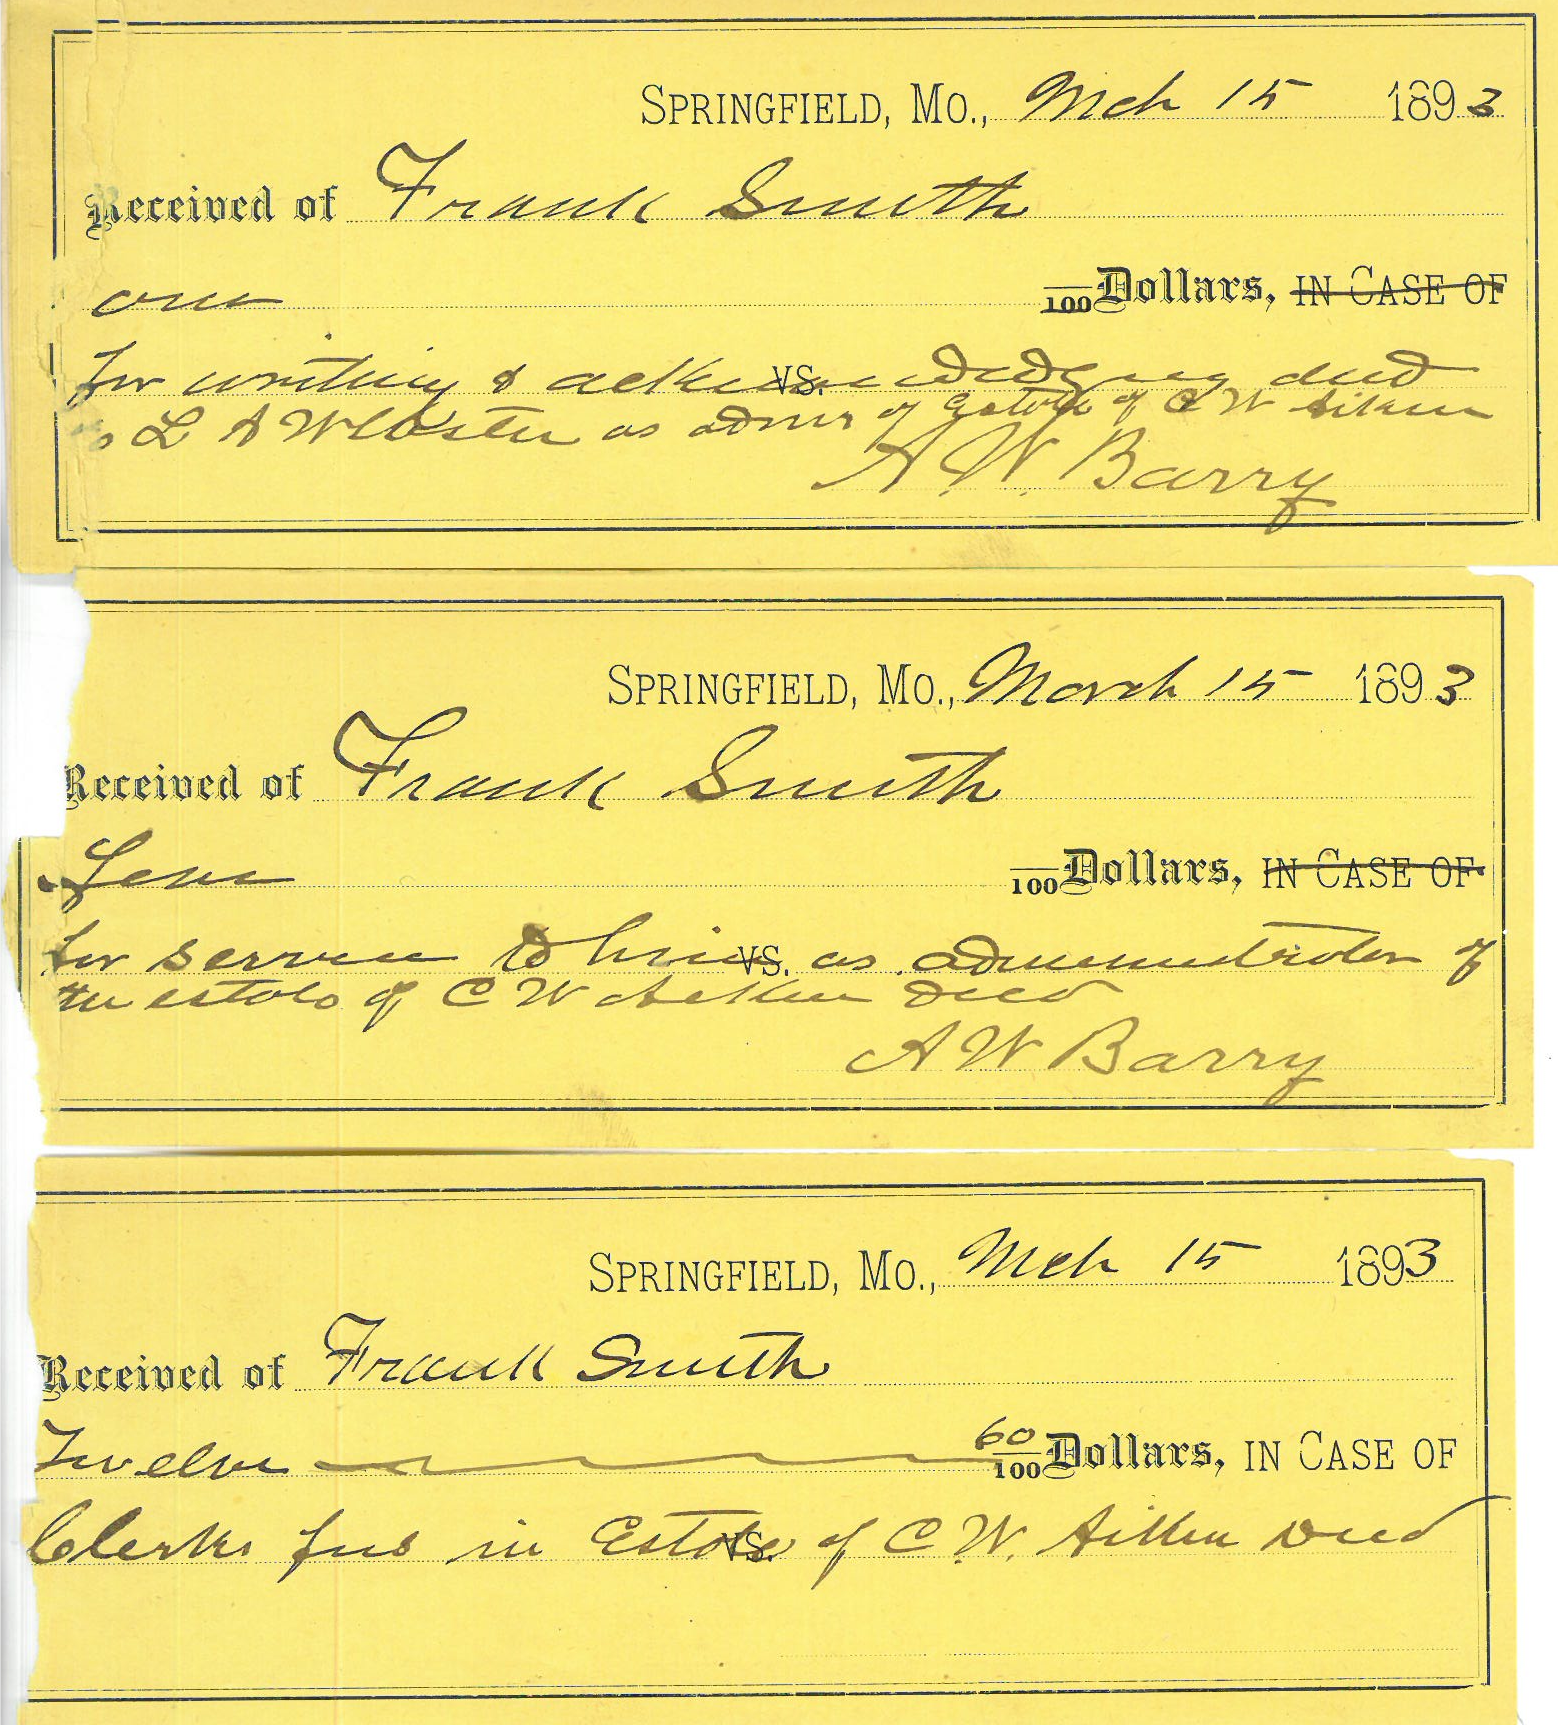 SPRINGFIELD, MO., Mch 15 1893
Received of Frank Smith
one /100 Dollars, IN CASE OF
for writing & acknowledging deed VS.
to L A Webster as admr of Estate of C W Aiken
A. W. Barry
SPRINGFIELD, MO., March 15 1893
Received of Frank Smith
/100 Dollars, IN CASE OF
for services to him VS. as administrator of
the estate of C W Aiken Decd
A W Barry
SPRINGFIELD, MO., Mch 15 1893
Received of Frank Smith
Twelve 60/100 Dollars, IN CASE OF
Clerks fees in Estate VS. of C. W. Aiken Decd